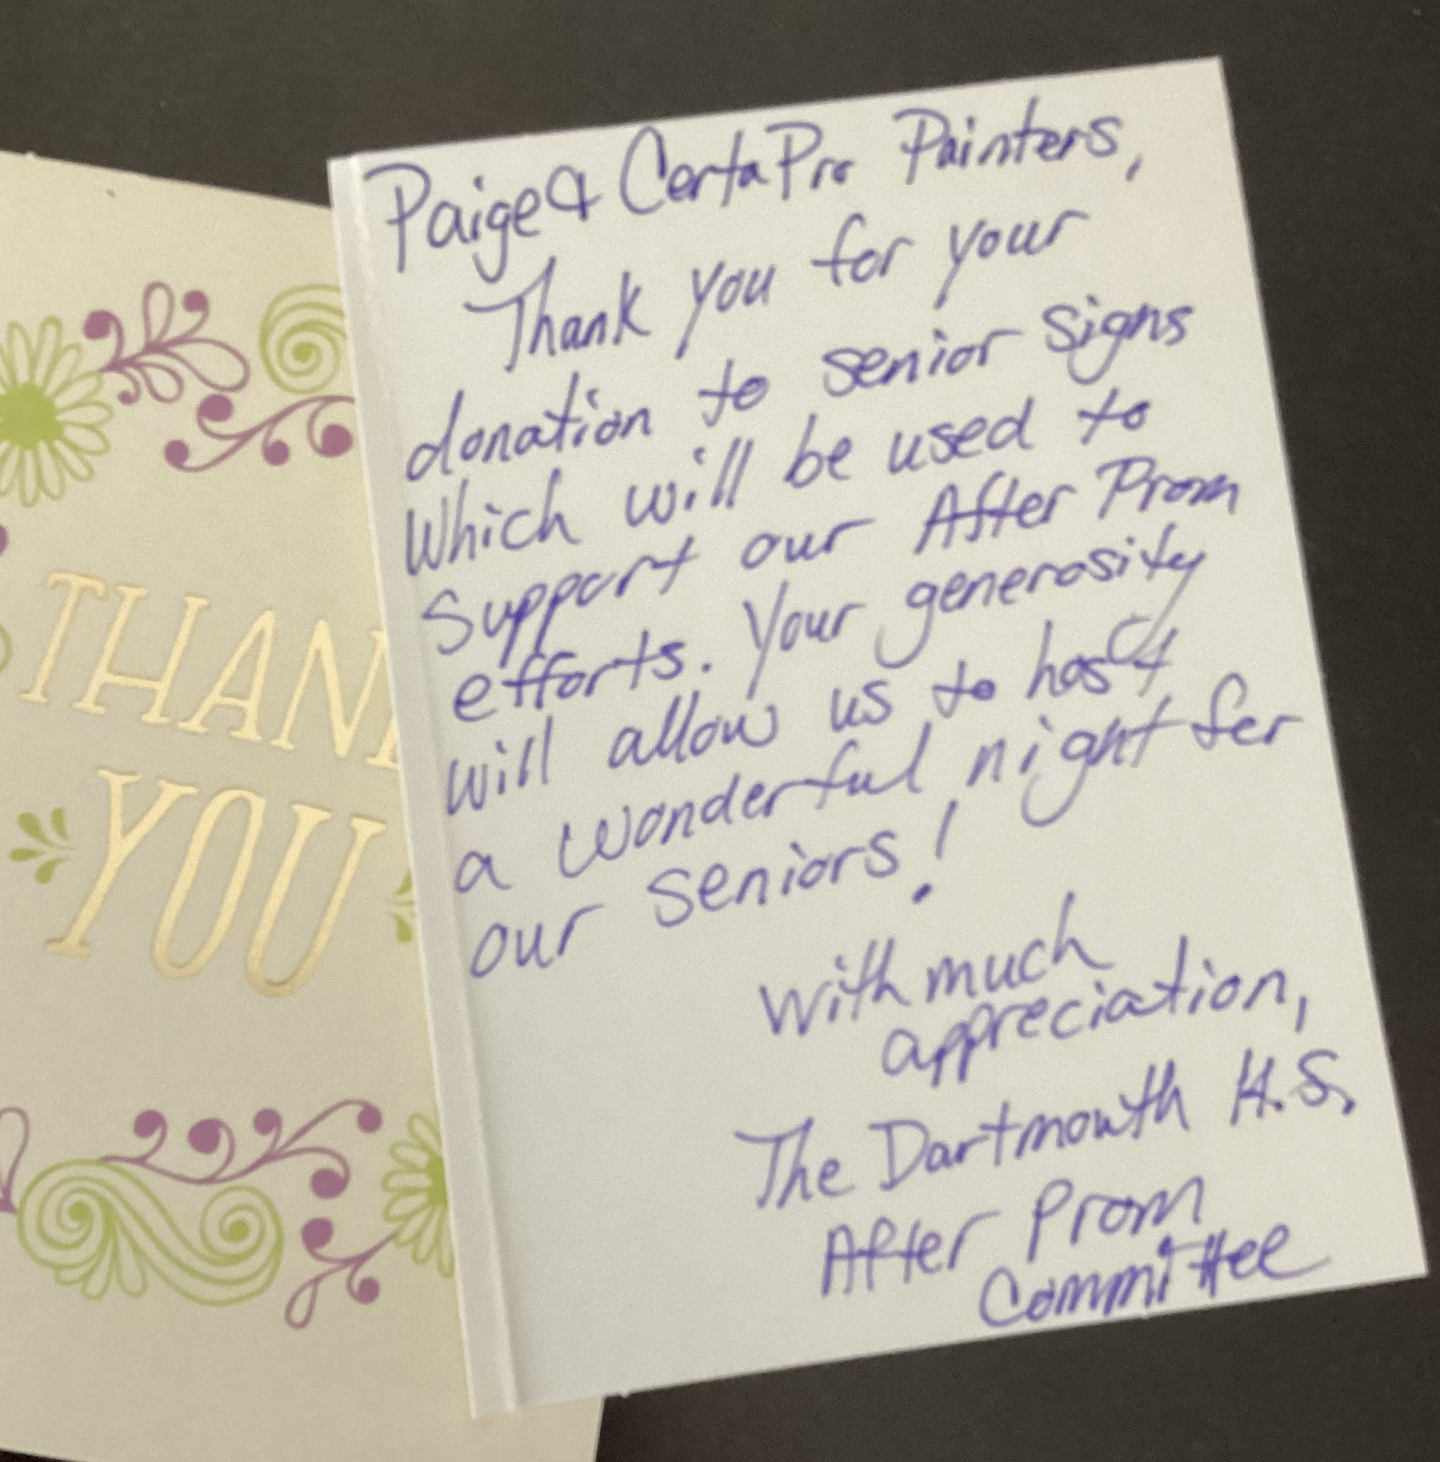 THANK
YOU
Paige & CertaPro Painters,
Thank you for your
donation to senior signs
Which will be used to
Support our After Prom
efforts. Your generosity
will allow us to host
a wonderful night for
our seniors!
With much
appreciation,
The Dartmouth H.S.
After Prom
Committee